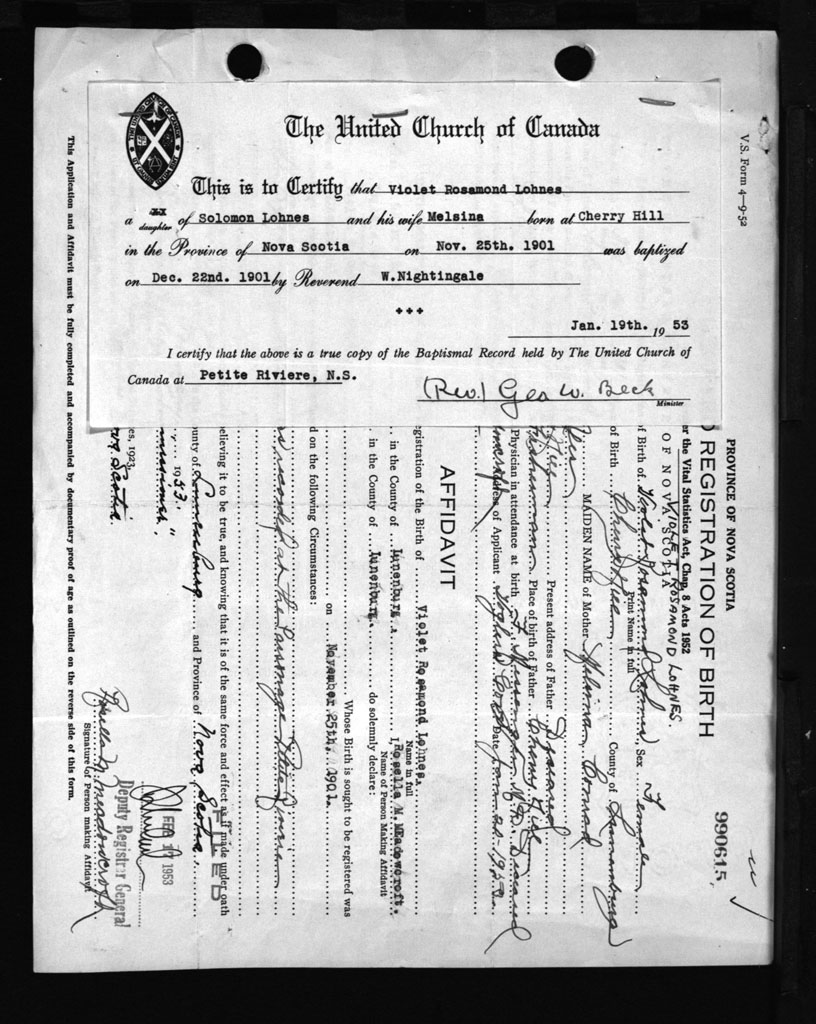 The United Church of Canada
This is to Certify that Violet Rosamond Lohnes
a daughter of Solomon Lohnes and his wife Melsina born at Cherry Hill
in the Province of Nova Scotia on Nov. 25th. 1901 was baptized
on Dec. 22nd. 1901 by Reverend W.Nightingale
+++
Jan. 19th. 19 53
I certify that the above is a true copy of the Baptismal Record held by The United Church of
Canada at Petite Riviere, N.S.
(Rev.) Geo W. Beck
Minister
V.S. Form 4—9-52
PROVINCE OF NOVA SCOTIA
990615
D REGISTRATION OF BIRTH
er the Vital Statistics Act, Chap. 8 Acts 1952
OF NOVA SCOTIA
VIOLET ROSAMOND LOHNES.
Print Name in full
f Birth of Violet Rosamond Lohnes, Sex Female
of Birth Cherry Hill County of Lunenburg
MAIDEN NAME of Mother Melsina Conrad
Present address of Father Deceased
Fisherman Place of birth of Father Cherry Hill
Physician in attendance at birth Deceased
Address of Applicant Date Jan 20-1953
AFFIDAVIT
gistration of the Birth of Violet Rosamond Lohnes.
Name in full
in the County of Lunenburg. I, Rosella M. Meadowcroft.
Name of Person Making Affidavit
in the County of Lunenburg. do solemnly declare:
Whose Birth is sought to be registered was
on November 25th. 1901.
d on the following Circumstances:
recorded at the Parsonage Petite Riviere
elieving it to be true, and knowing that it is of the same force and effect as if made under oath
FILED
ounty of Lunenburg and Province of Nova Scotia.
1953.
FEB 17 1953
es, 1923.
Nova Scotia
Deputy Registrar General
Rosella M. Meadowcroft.
Signature of Person making Affidavit
This Application and Affidavit must be fully completed and accompanied by documentary proof of age as outlined on the reverse side of this form.